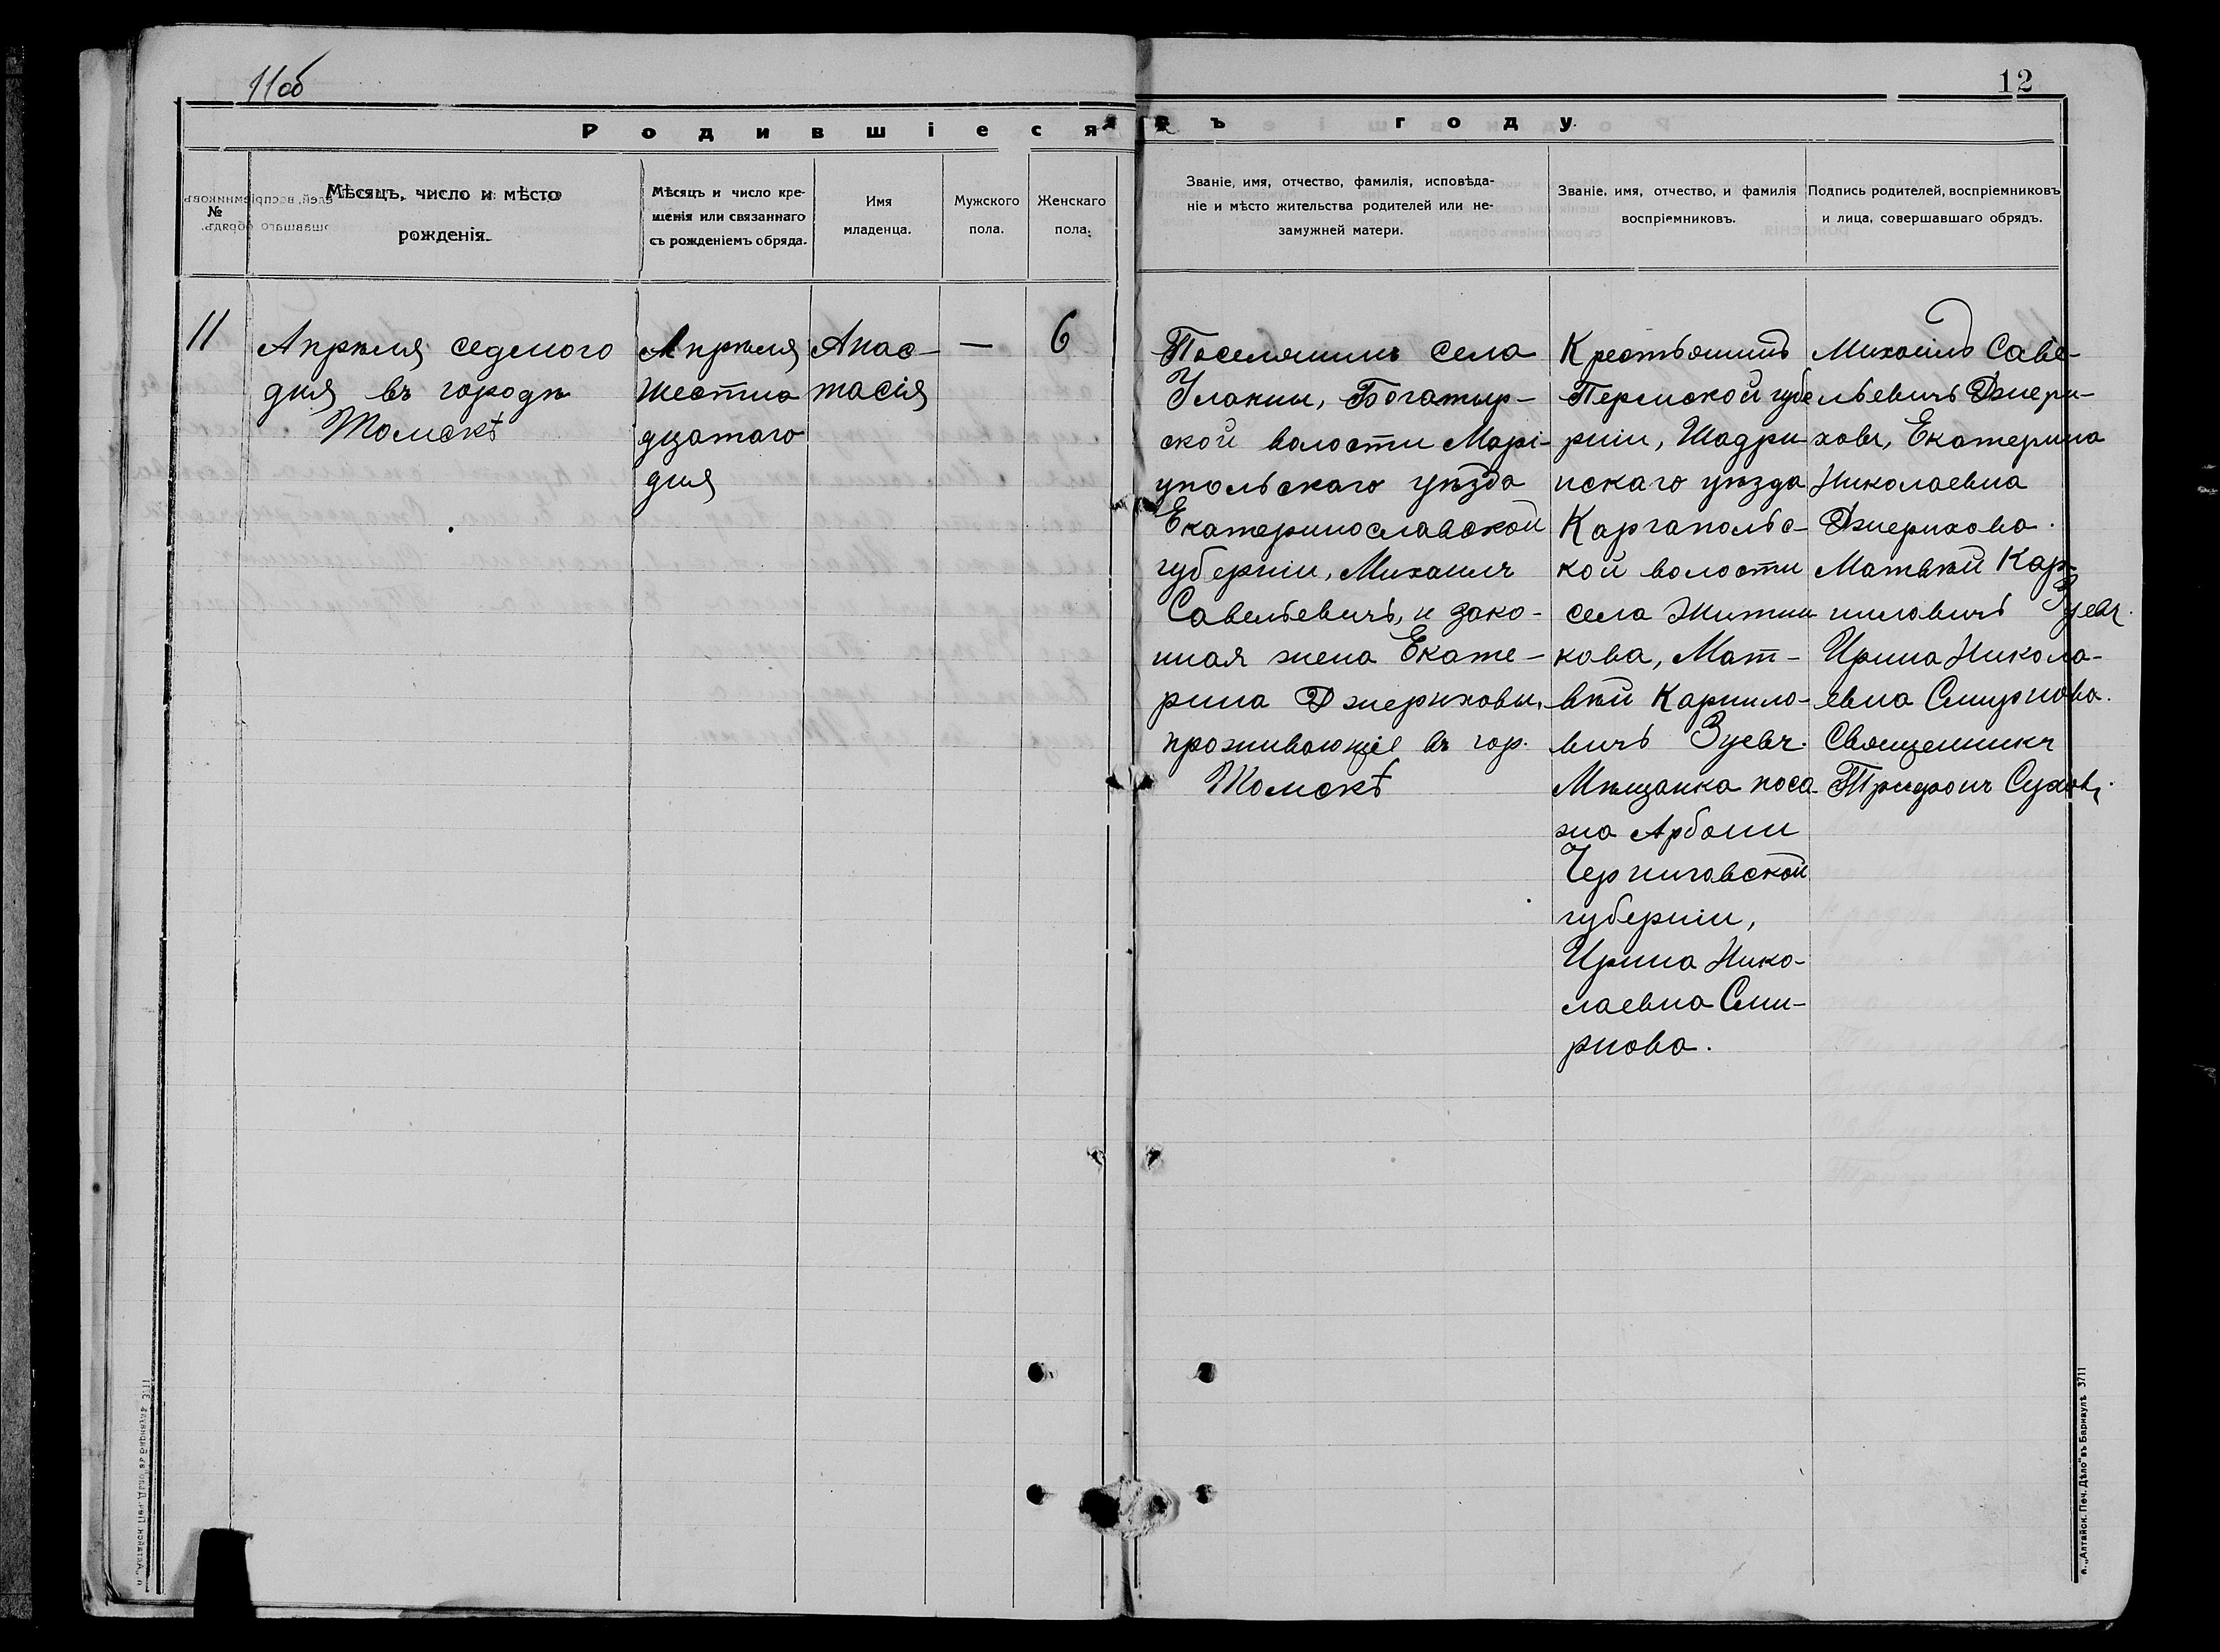 11об
12
Родившіеся въ году.
№
Мѣсяцъ, число и мѣсто
рожденія.
Мѣсяцъ и число кре-
щенія или связаннаго
съ рожденіемъ обряда.
Имя
младенца.
Мужского
пола.
Женскаго
пола.
Званіе, имя, отчество, фамилія, исповѣда-
ніе и мѣсто жительства родителей или не-
замужней матери.
Званіе, имя, отчество, и фамилія
воспріемниковъ.
Подпись родителей, воспріемниковъ
и лица, совершавшаго обрядъ.
11
Апрѣля седмого
дня въ городѣ
Томскѣ
Апрѣля
шестна
дцатаго
дня
Анас-
тасія
—
6
Поселянинъ села
Улаклы, Богатыр-
ской волости Марі-
упольскаго уѣзда
Екатеринославской
губерніи, Михаилъ
Савельевичъ, и зако-
нная жена Екате-
рина Джериховы,
проживающіе въ гор.
Томскѣ
Крестьянинъ
Пермской губе
рніи, Шадри
нскаго уѣзда
Каргапольс-
кой волости
села Житни
кова, Мат-
вѣй Карпило-
вичъ Зуевъ.
Мѣщанка поса
жа Арбаши
Черниговской
губерніи,
Ирина Нико-
лаевна Сми-
рнова.
Михаилъ Саве-
льевичъ Джери-
ховъ, Екатерина
Николаевна
Джерихова.
Матвѣй Кар-
пиловичъ Зуевъ.
Ирина Никола-
евна Смирнова.
Священникъ
Трифонъ Суховъ.
п. „Алтайск. Печ. Дѣло" въ Барнаулѣ 3711